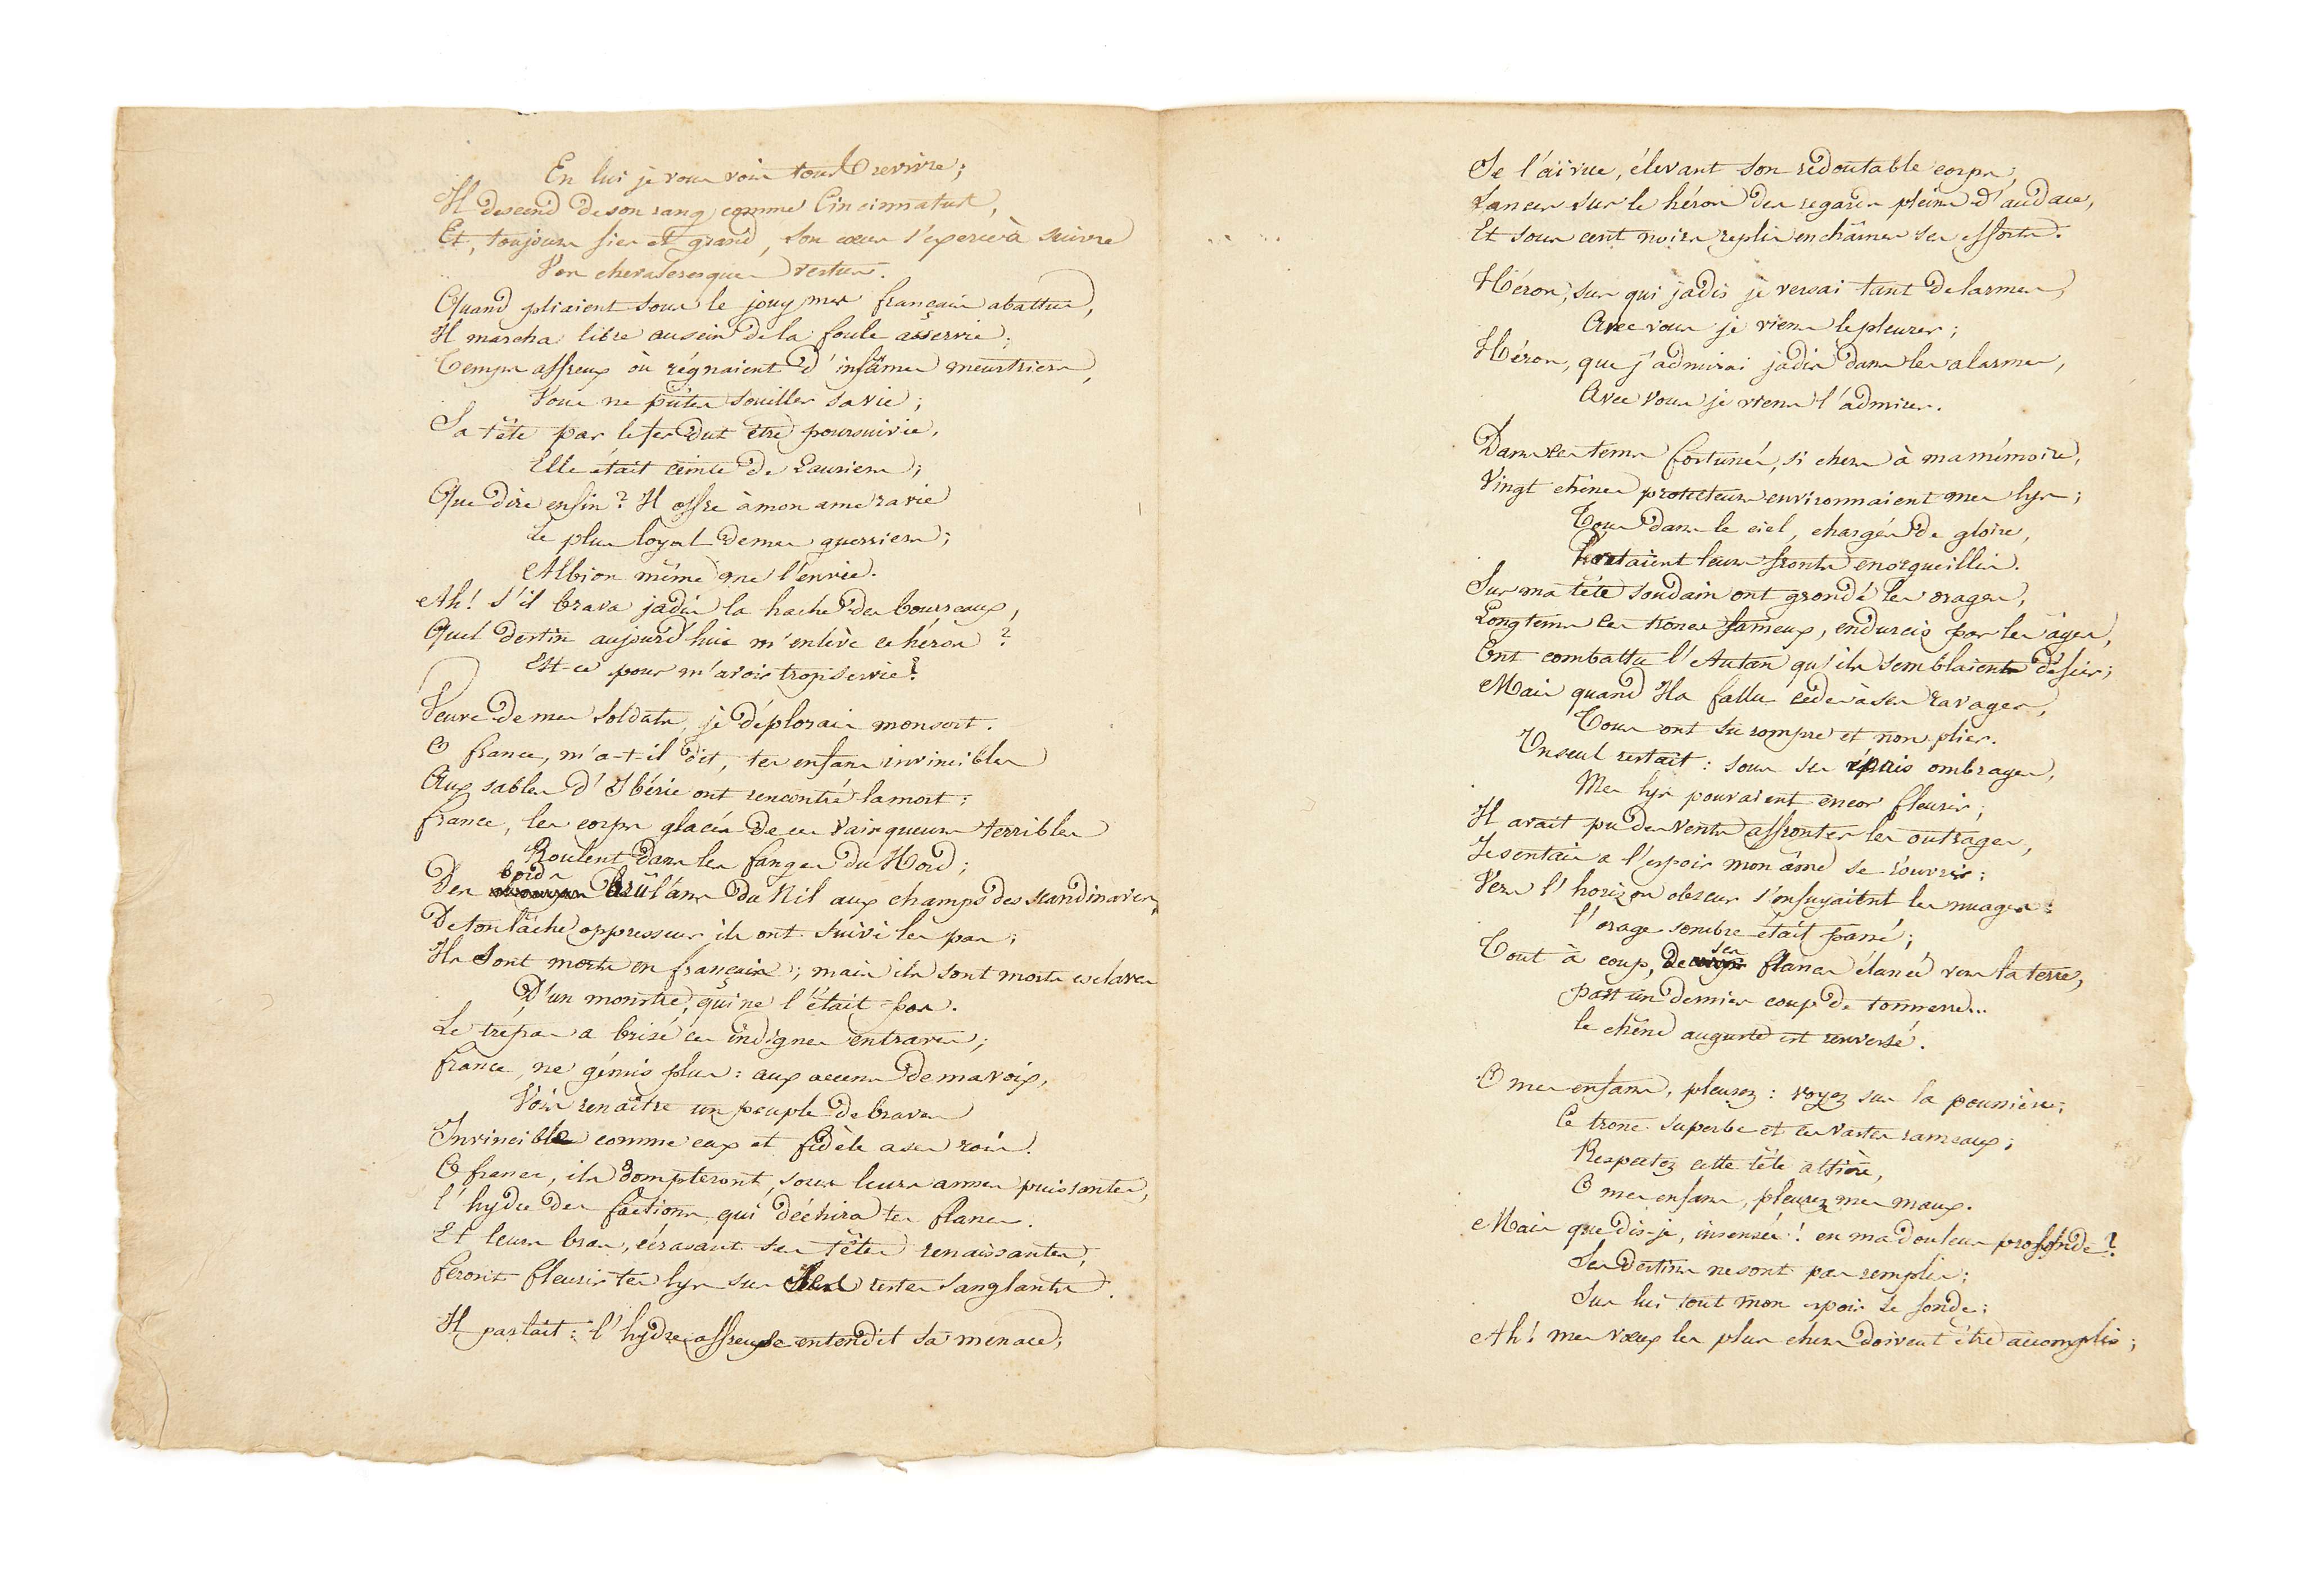 En lui je vous vois tous revivre;
Il descend de son rang comme Cincinnatus,
Et, toujours fier et grand, son cœur s'exerce à suivre
Vos chevaleresques vertus.
Quand pliaient sous le joug mes français abattus,
Il marcha libre au sein de la foule asservie;
Temps affreux où régnaient d'infâmes meurtriers,
Vous ne pûtes souiller sa vie;
Sa tête par le fer dut être poursuivie,
Elle était ceinte de Lauriers;
Que dire enfin? Il offre à mon ame ravie
Le plus loyal de mes guerriers;
Albion même me l'envie.
Ah! s'il brava jadis la hache des bourreaux,
Quel destin aujourd'hui m'enlève ce héros?
Est-ce pour m'avoir trop servie?
Veuve de mes soldats, je déplorais mon sort.
O france, m'a-t-il dit, tes enfans invincibles
Aux sables d'Ibérie ont rencontré la mort;
france, les corps glacés de ces vainqueurs terribles
Roulent dans les fanges du Nord;
Des bords brûlans du Nil aux champs des scandinaves,
De ton lâche oppresseur ils ont suivi les pas;
Ils sont morts en français; mais ils sont morts esclaves
D'un monstre, qui ne l'était pas.
Le trépas a brisé ces indignes entraves;
france, ne gémis plus: aux accens de ma voix,
Vois renaître un peuple de braves
Invincible comme eux et fidèle a ses rois.
O france, ils dompteront, sous leurs armes puissantes,
l'hydre des factions qui déchira tes flancs.
Et leurs bras, écrasant ses têtes renaissantes,
feront fleurir tes lys sur ses restes sanglants.
Il parlait: l'hydre affreuse entendit sa menace;
Je l'ai vue, élevant son redoutable corps,
Lancer sur le héros des regards pleins d'audace,
Et sous cent noirs replis enchaîner ses efforts.
Héros, sur qui jadis je versai tant de larmes,
Avec vous je viens le pleurer;
Héros, que j'admirai jadis dans les alarmes,
Avec vous je viens l'admirer.
Dans ces tems fortunés, si chers à ma mémoire,
Vingt chênes protecteurs environnaient mes lys;
Tous dans le ciel, chargés de gloire,
Portaient leurs fronts enorgueillis.
Sur ma tête soudain ont grondé les orages,
Longtems ces troncs fameux, endurcis par les âges,
Ont combattu l'Autan qu'ils semblaient défier;
Mais quand Il a fallu céder à ses ravages,
Tous ont su rompre et non plier.
Un seul restait: sous ses épais ombrages,
Mes lys pouvaient encor fleurir;
Il avait pu des vents affronter les outrages,
Je sentais a l'espoir mon âme se r'ouvrir;
Vers l'horizon obscur s'enfuyaient les nuages:
l'orage sombre était passé;
Tout à coup, de ses flancs élancé vers la terre,
part un dernier coup de tonnerre...
le chêne auguste est renversé.
O mes enfans, pleurez: voyez sur la poussière,
Ce tronc superbe et ces vastes rameaux;
Respectez cette tête altière,
O mes enfans, pleurez mes maux.
Mais que dis-je, insensée! en ma douleur profonde?
Ses destins ne sont pas remplis;
Sur lui tout mon espoir se fonde;
Ah! mes vœux les plus chers doivent être accomplis;